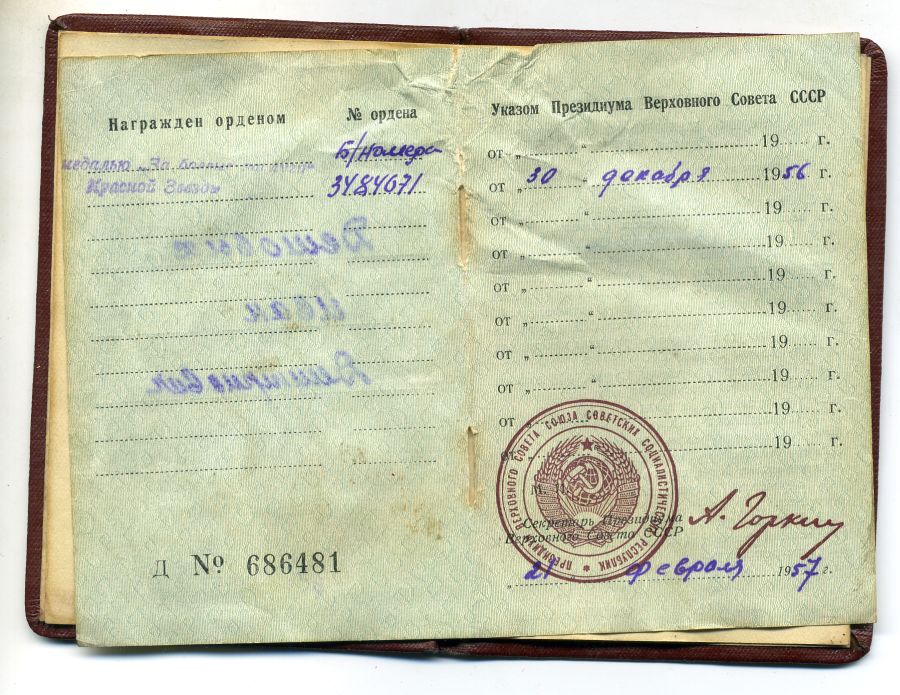 Награжден орденом
№ ордена
медалью „За боевые заслуги"
Б/номера
Красной Звезды
3484671
Д № 686481
Указом Президиума Верховного Совета СССР
от „ “ 19 г.
от „ 30 “ декабря 1956 г.
от „ “ 19 г.
от „ “ 19 г.
от „ “ 19 г.
от „ “ 19 г.
от „ “ 19 г.
от „ “ 19 г.
от „ “ 19 г.
от „ “ 19 г.
ПРЕЗИДИУМ ВЕРХОВНОГО СОВЕТА СОЮЗА СОВЕТСКИХ СОЦИАЛИСТИЧЕСКИХ РЕСПУБЛИК
М.
Секретарь Президиума
Верховного Совета СССР
А. Горкин
„ 21 февраля 1957 г.